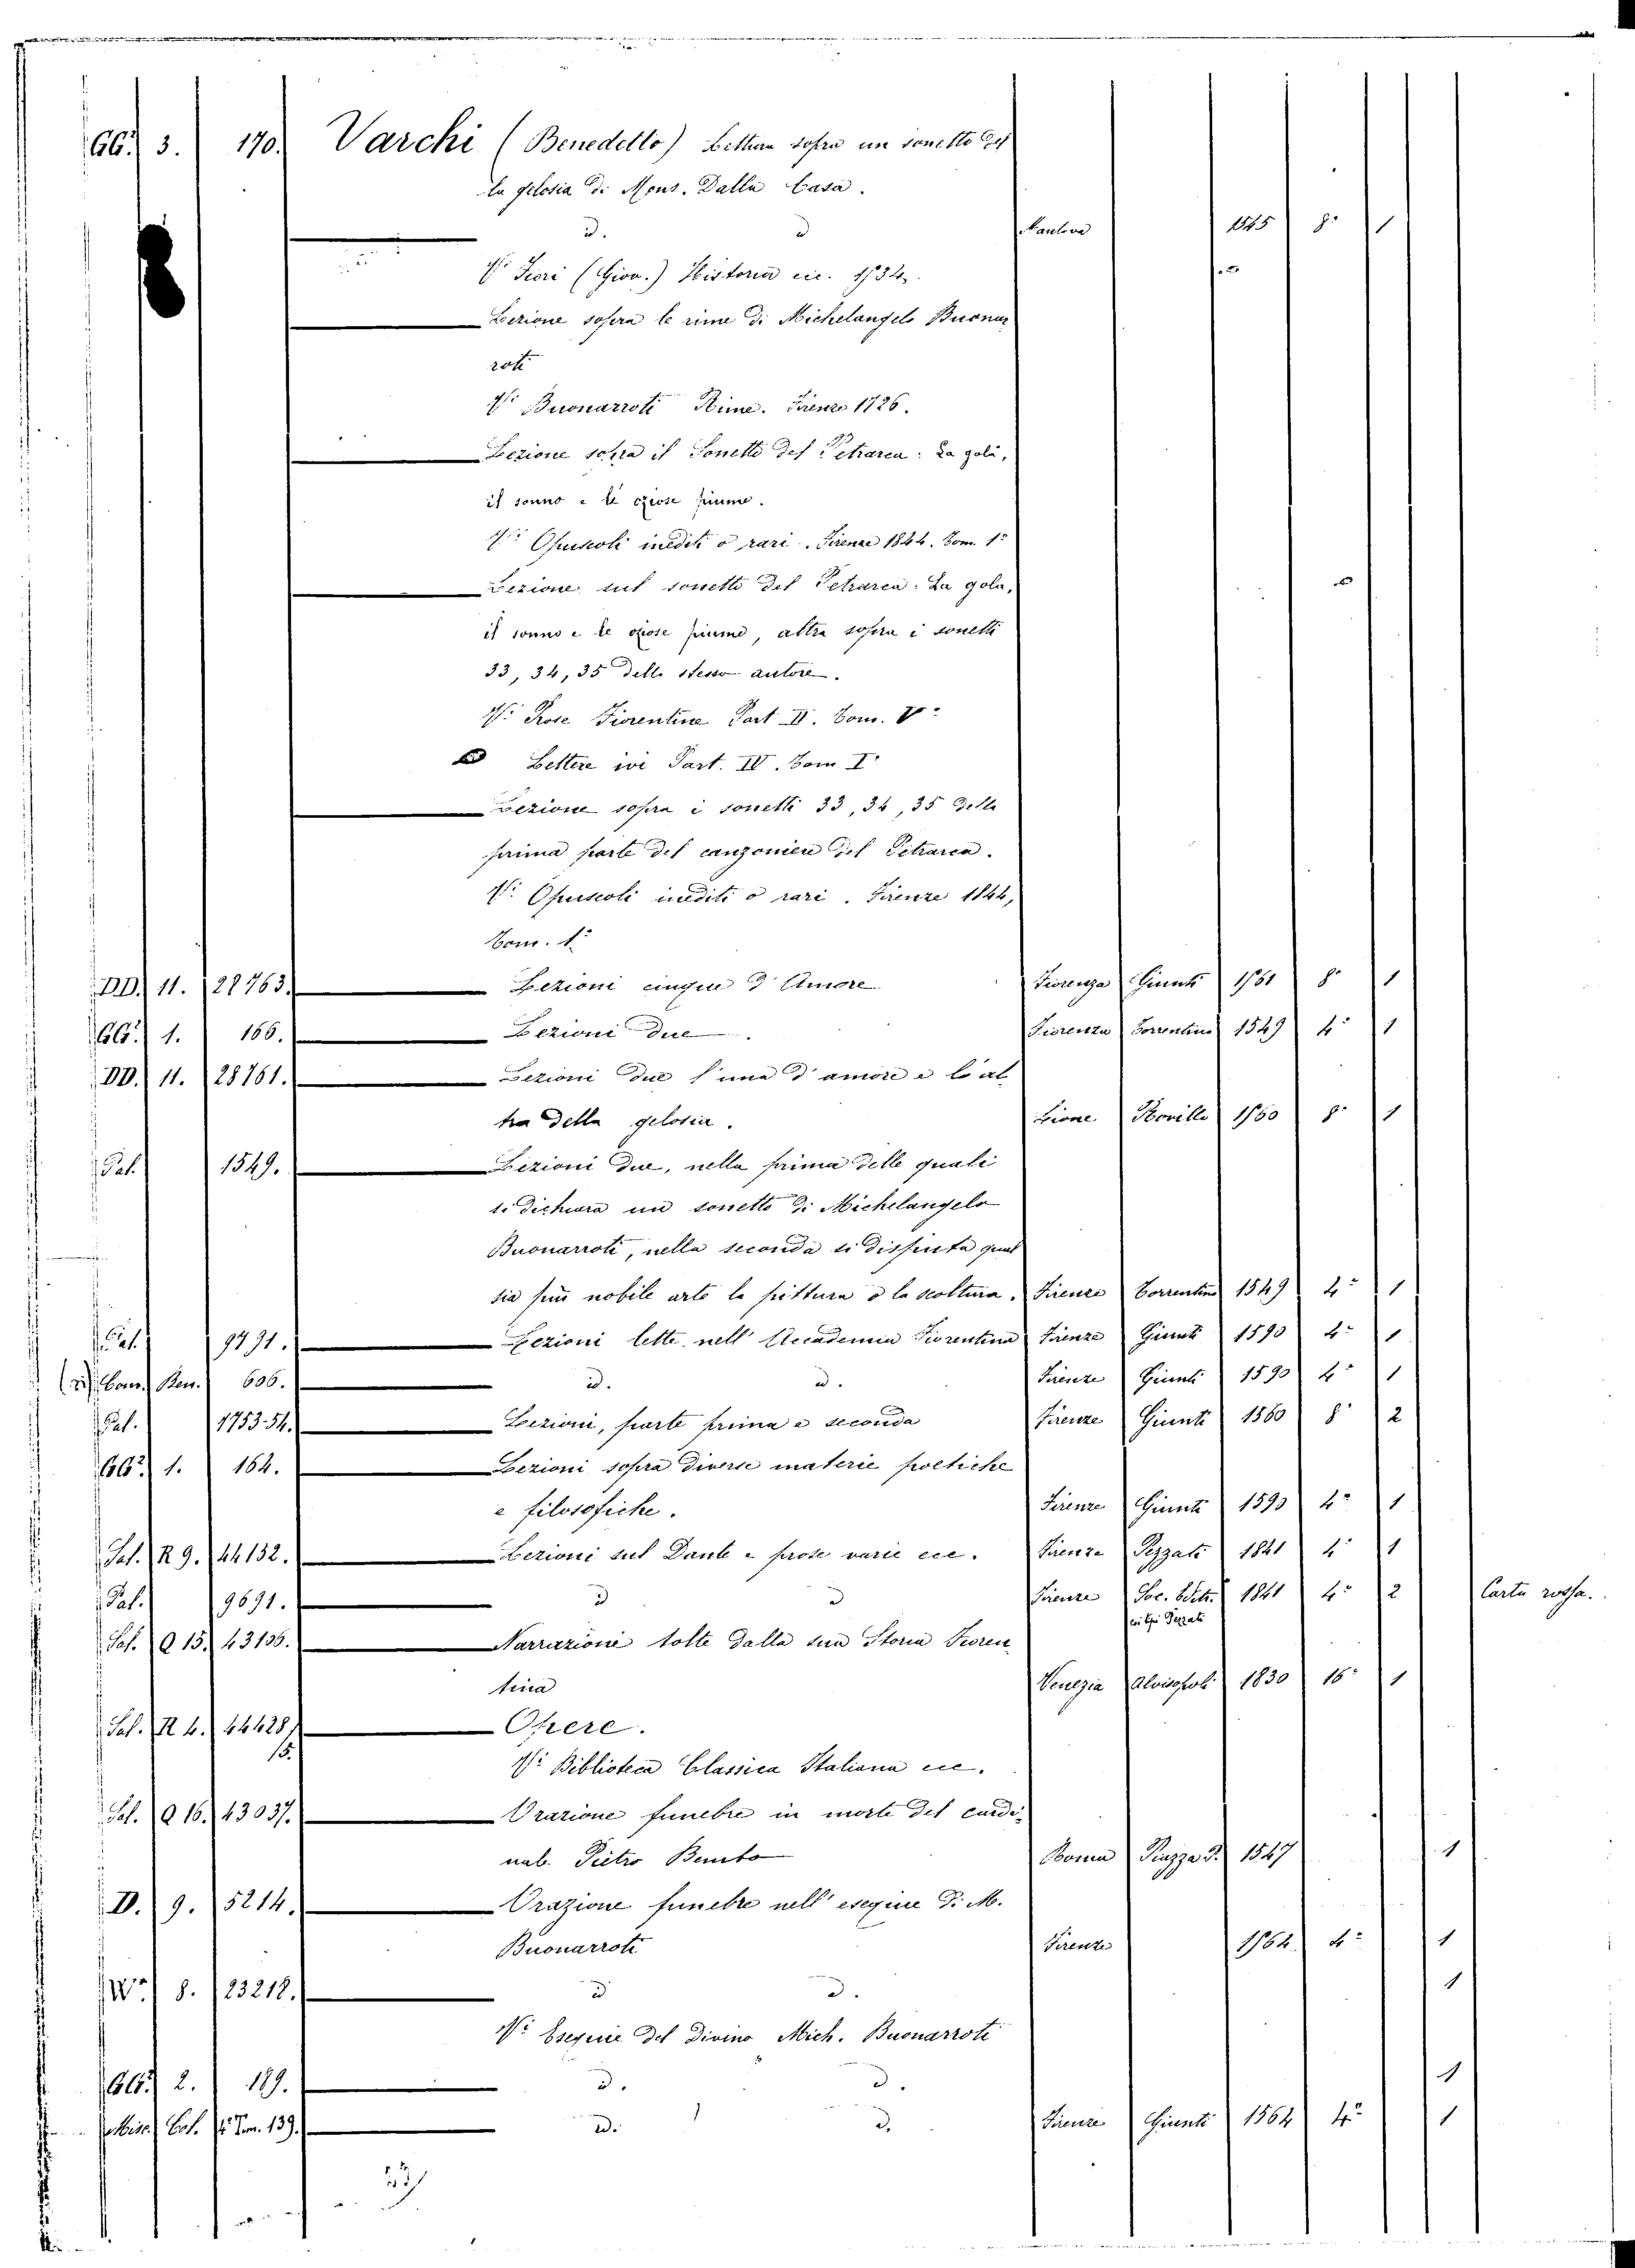 GG. 3. 170. Varchi (Benedetto) Lettura sopra un sonetto del
la gelosia di Mons. Dalla Casa.
id. id Mantova 1545 8° 1
V. Fiori (Giov.) Historia ecc. 1734.
Lezione sopra le rime di Michelangelo Buonar
roti
V. Buonarroti Rime. Firenze 1726.
Lezione sopra il Sonetto del Petrarca: La gola,
il sonno e le oziose piume.
V. Opuscoli inediti o rari. Firenze 1844. Tom. 1°
Lezione sul sonetto del Petrarca: La gola,
il sonno e le oziose piume, altra sopra i sonetti
33, 34, 35 dello stesso autore.
V. Prose Fiorentine Part. II. Tom. V°
Lettere ivi Part. IV. Tom I°
Lezione sopra i sonetti 33, 34, 35 della
prima parte del canzoniere del Petrarca.
V. Opuscoli inediti o rari. Firenze 1844,
Tom. 1°
DD. 11. 28763. Lezioni cinque d'Amore Fiorenza Giunti 1561 8° 1
GG. 1. 166. Lezioni due. Fiorenza Torrentino 1549 4° 1
DD. 11. 28761. Lezioni due l'una d'amore e l'al
tra della gelosia. Lione Roville 1560 8° 1
Pal. 1549. Lezioni due, nella prima delle quali
si dichiara un sonetto di Michelangelo
Buonarroti, nella seconda si disputa qual
sia più nobile arte la pittura o la scoltura. Firenze Torrentino 1549 4° 1
Pal. 9791. Lezioni lette nell'Accademia Fiorentina Firenze Giunti 1590 4° 1
Com. Ren. 606. id. id. Firenze Giunti 1590 4° 1
Pal. 1753-54. Lezioni, parte prima e seconda Firenze Giunti 1560 8° 2
GG. 1. 164. Lezioni sopra diverse materie poetiche
e filosofiche. Firenze Giunti 1590 4° 1
Sal. R 9. 44132. Lezioni sul Dante e prose varie ecc. Firenze Pezzati 1841 4° 1
Pal. 9691. id id Firenze Soc. Editr. 1841 4° 2 Carta rossa.
coi tipi Pezzati
Sal. Q 15. 43106. Narrazioni tolte dalla sua Storia Fioren
tina Venezia Alvisopoli 1830 16° 1
Sal. R 4. 44428/ Opere.
15.
V. Biblioteca Classica Italiana ecc.
Sal. Q 16. 43037. Orazione funebre in morte del cardi
nale Pietro Bembo Roma Piazza P. 1547 1
D. 9. 5214. Orazione funebre nell'esequie di M.
Buonarroti Firenze 1564. 4° 1
W. 8. 23218. id id. 1
V. Esequie del Divino Mich. Buonarroti
GG. 2. 189. id. id. 1
Misc. Col. 4° Tom. 139. id. id. Firenze Giunti 1564 4° 1